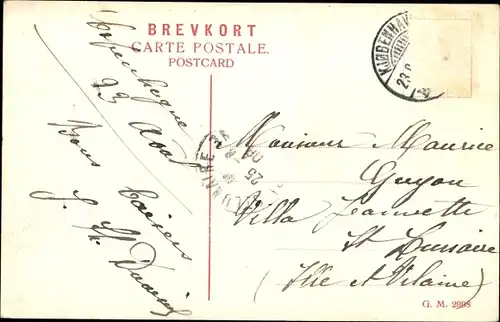 BREVKORT
CARTE POSTALE.
POSTCARD
KJØBENHAV
23.8
Copenhague
23 Août
Bons baisers
Monsieur Maurice
Guyon
Villa Jeannette
St Lunaire
(Ille et Vilaine)
G. M. 2998